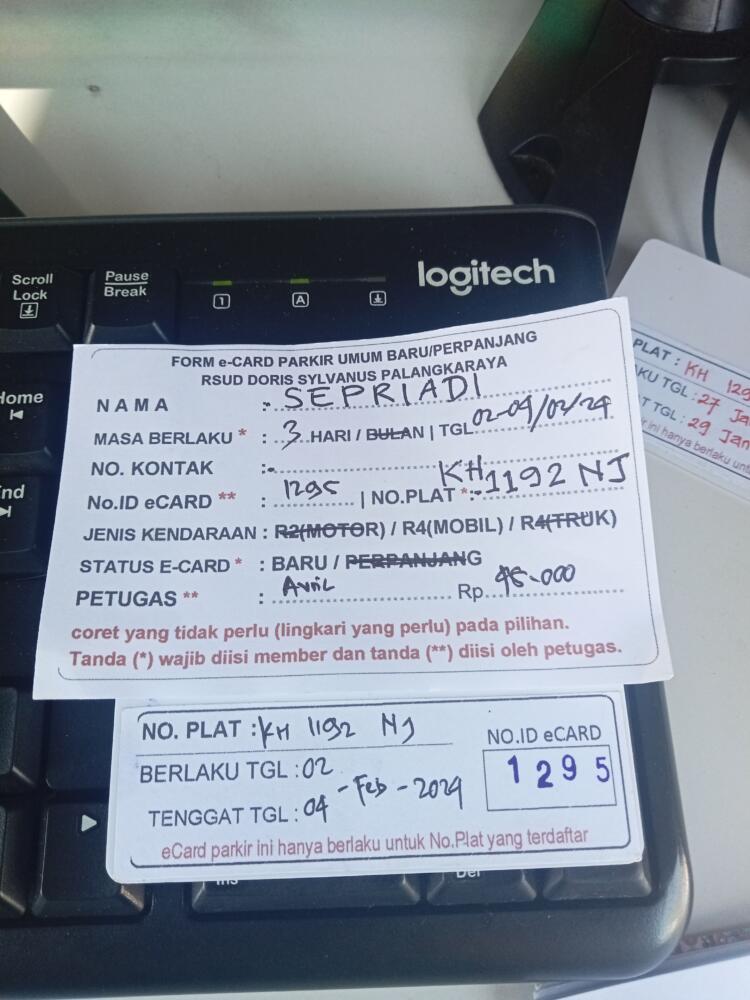 Scroll
Lock
Pause
Break
1
A
logitech
Home
End
FORM e-CARD PARKIR UMUM BARU/PERPANJANG
RSUD DORIS SYLVANUS PALANGKARAYA
NAMA : SEPRIADI
MASA BERLAKU * : 3 HARI / BULAN | TGL 02-04/02/24
NO. KONTAK : -
No.ID eCARD ** : 1295 | NO.PLAT * : KH 1192 NJ
JENIS KENDARAAN : R2(MOTOR) / R4(MOBIL) / R4(TRUK)
STATUS E-CARD * : BARU / PERPANJANG
PETUGAS ** : Avril Rp. 45.000
coret yang tidak perlu (lingkari yang perlu) pada pilihan.
Tanda (*) wajib diisi member dan tanda (**) diisi oleh petugas.
NO. PLAT : KH 1192 NJ
BERLAKU TGL : 02
TENGGAT TGL : 04 - Feb - 2024
NO.ID eCARD
1295
eCard parkir ini hanya berlaku untuk No.Plat yang terdaftar
PLAT : KH 129
KU TGL : 27 Ja
T TGL : 29 Jan
ini hanya berlaku unt
Ins
Del